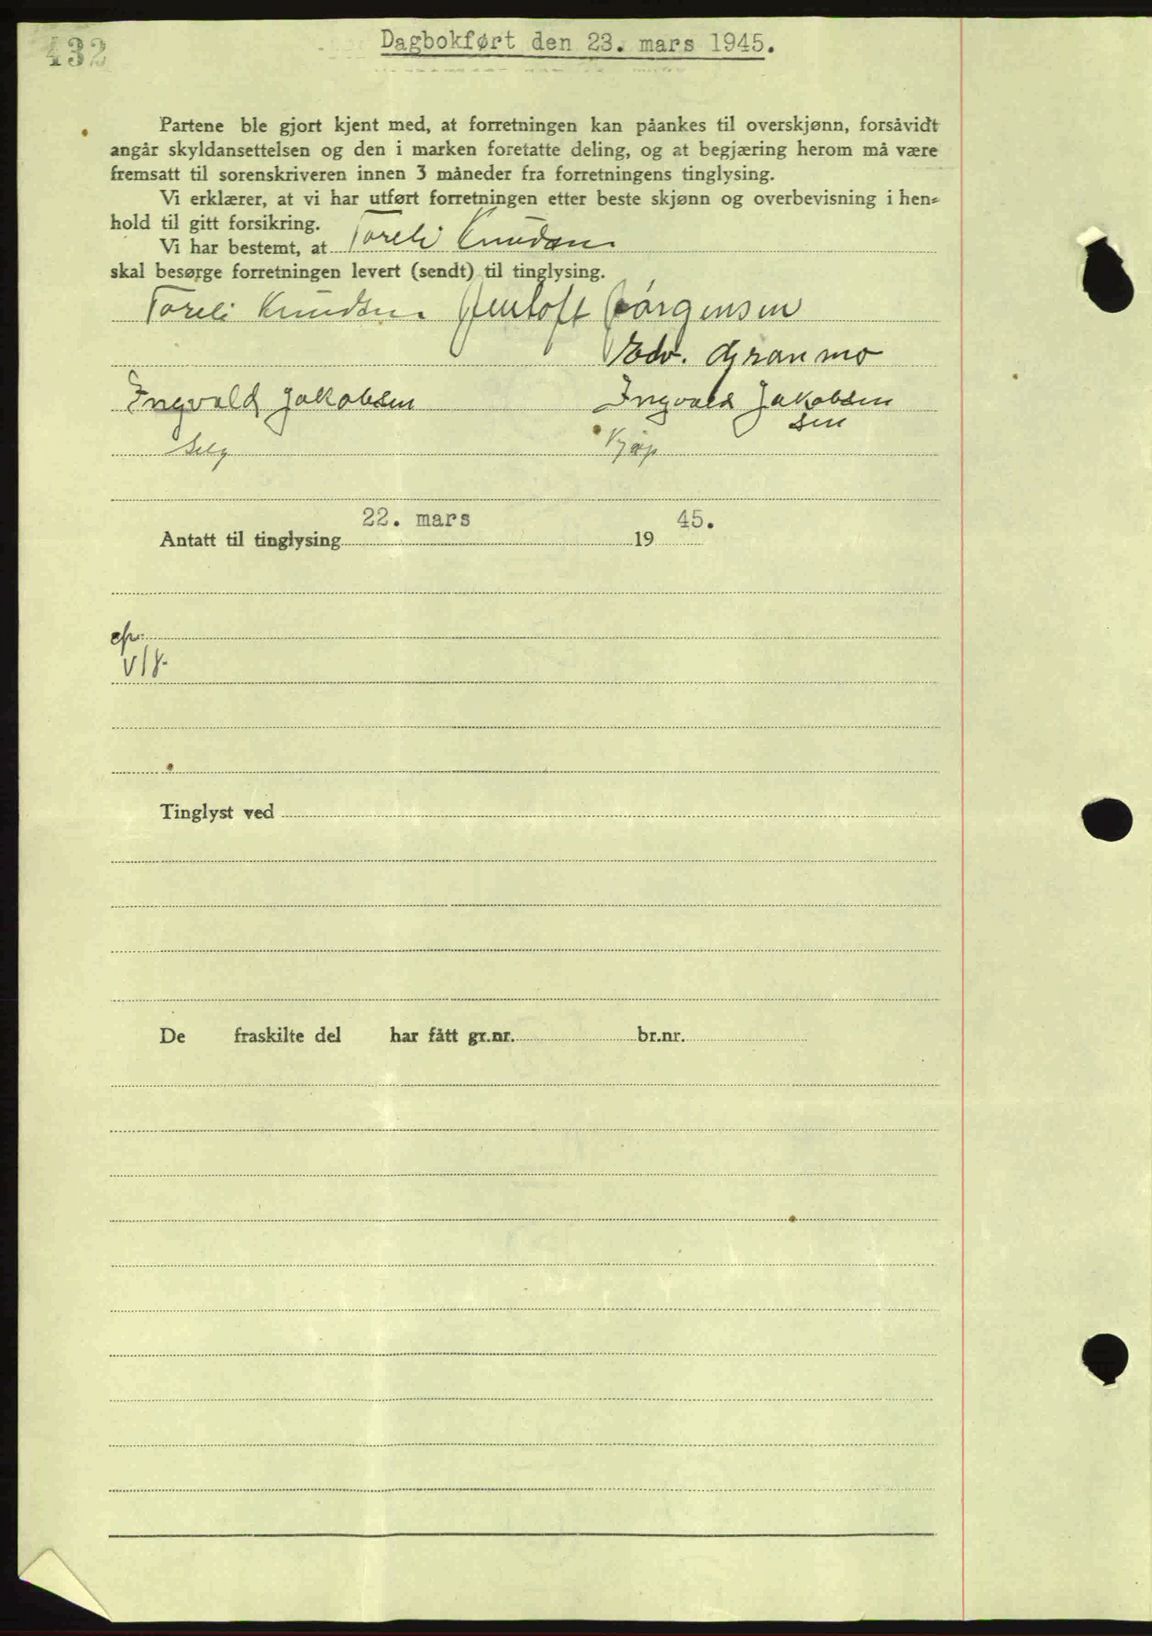 432
Dagbokført den 23. mars 1945.
Partene ble gjort kjent med, at forretningen kan påankes til overskjønn, forsåvidt
angår skyldansettelsen og den i marken foretatte deling, og at begjæring herom må være
fremsatt til sorenskriveren innen 3 måneder fra forretningens tinglysing.
Vi erklærer, at vi har utført forretningen etter beste skjønn og overbevisning i hen=
hold til gitt forsikring.
Vi har bestemt, at Toreli Knudsen
skal besørge forretningen levert (sendt) til tinglysing.
Toreli Knudsen Jentoft Jörgensen
Edv. Granmo
Ingvald Jakobsen Ingvald Jakobsen
sen
Selg Kjøp
22. mars 45.
Antatt til tinglysing 19
Tinglyst ved
De fraskilte del har fått gr.nr. br.nr.